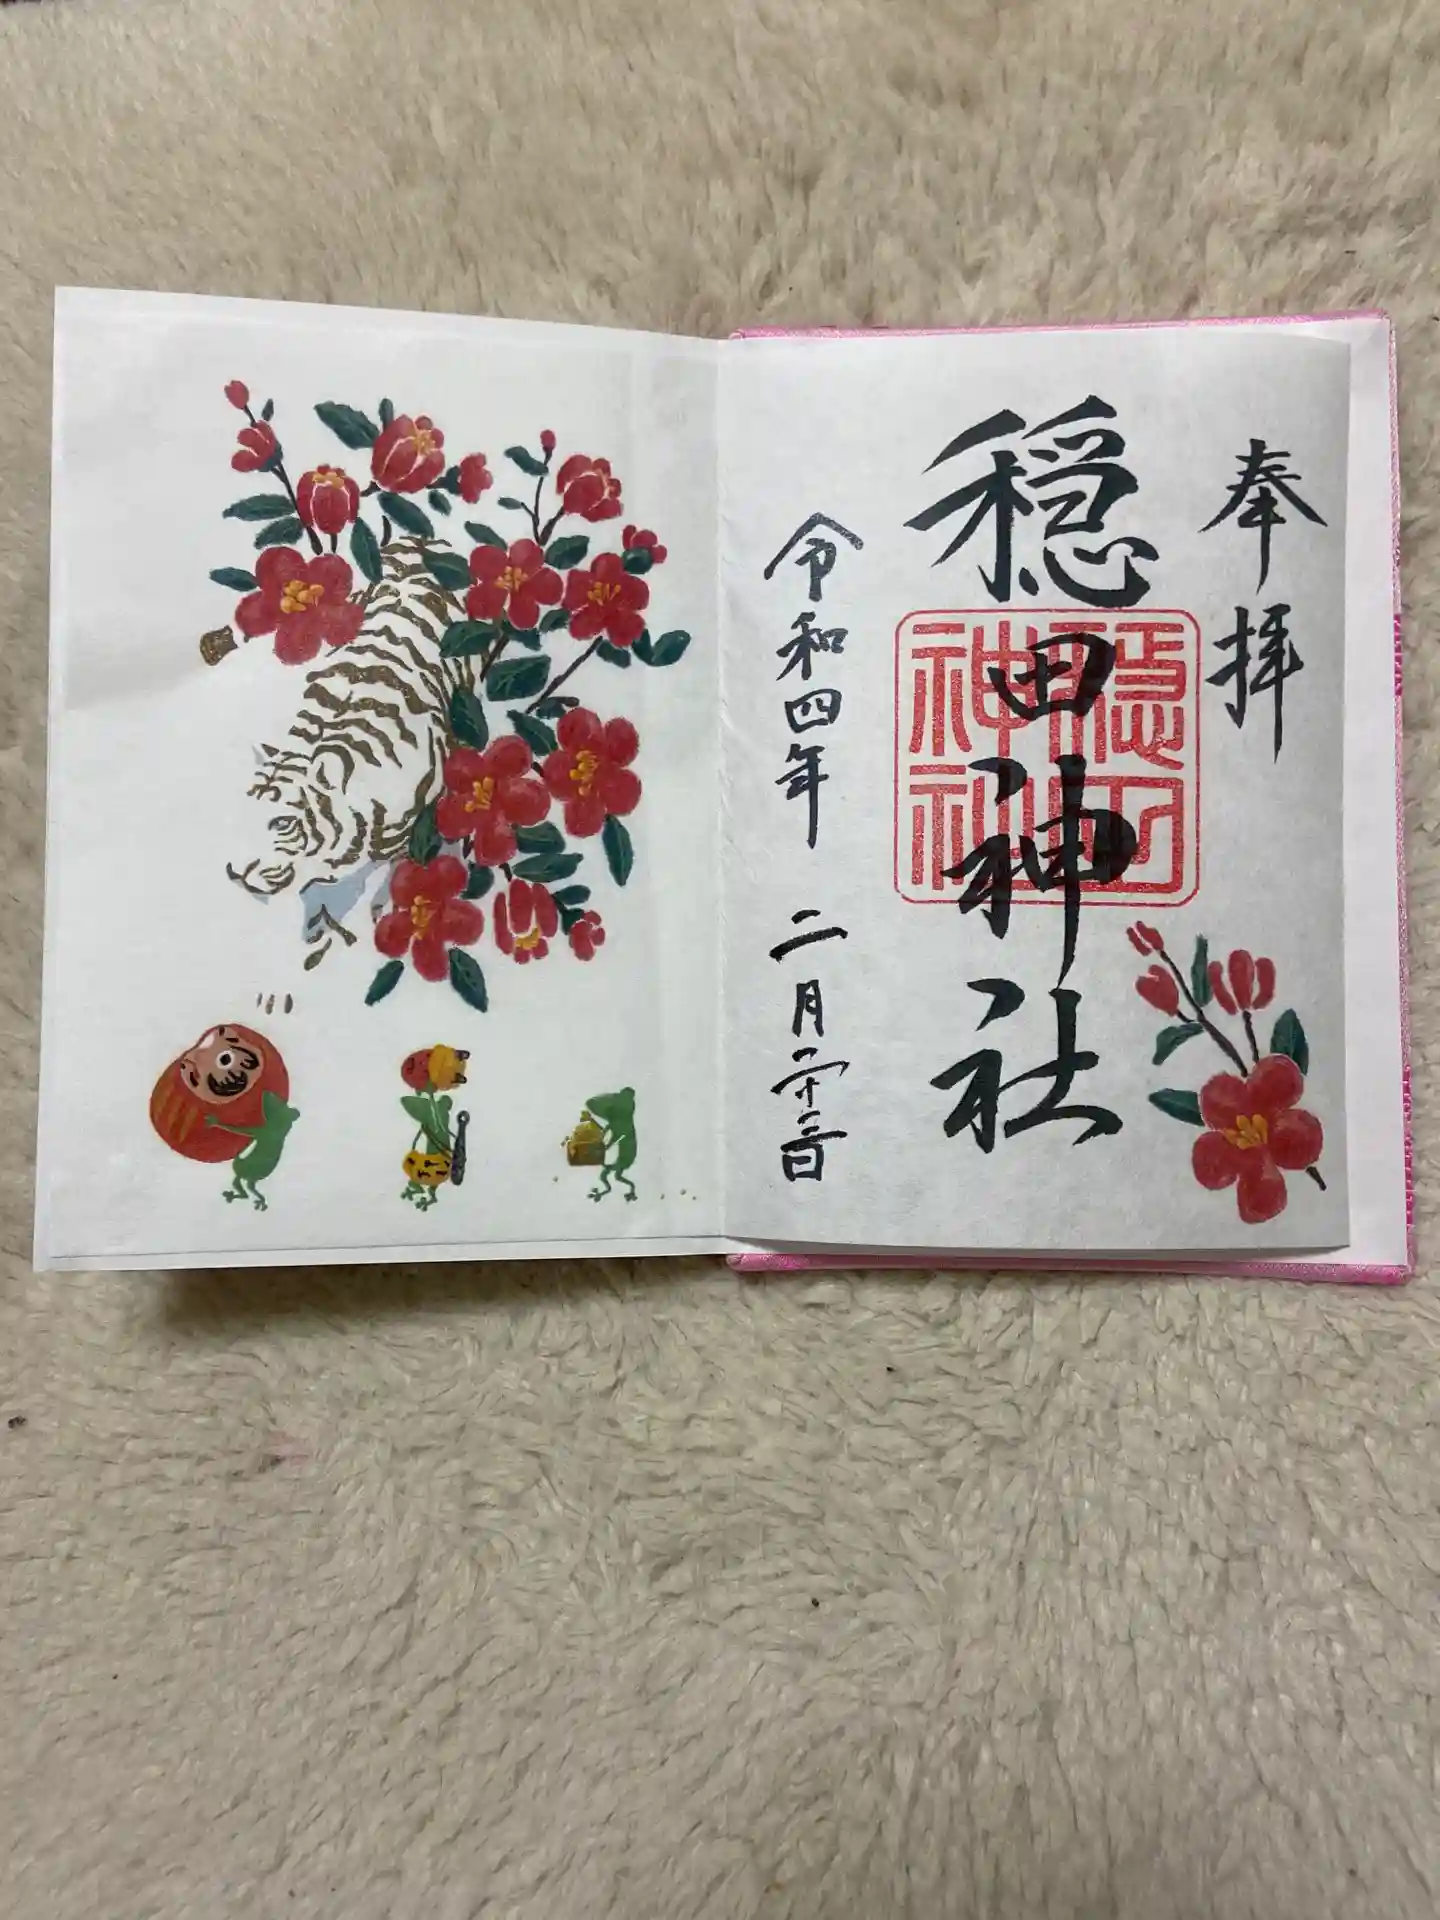 奉拝
穏田神社
穏田
神社
令和四年 二月二十二日